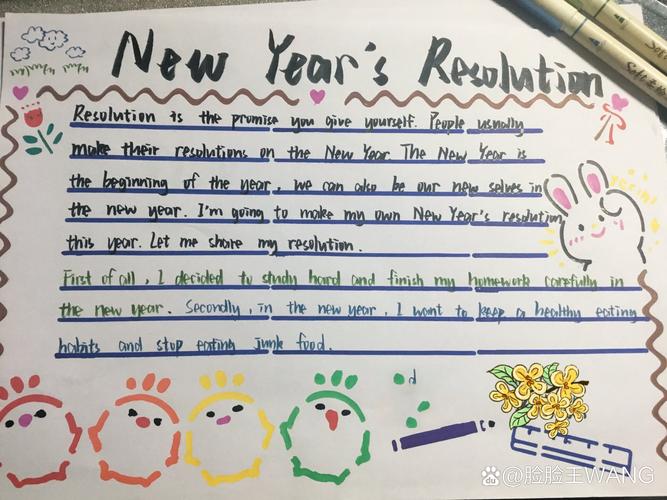 New Year's Resolution
Resolution is the promise you give yourself. People usually
make their resolutions on the New Year. The New Year is
the beginning of the year, we can also be our new selves in
the new year. I'm going to make my own New Year's resolution
this year. Let me share my resolution.
First of all, I decided to study hard and finish my homework carefully in
the new year. Secondly, in the new year, I want to keep a healthy eating
habits and stop eating junk food.
d
Bai du @脸脸王WANG